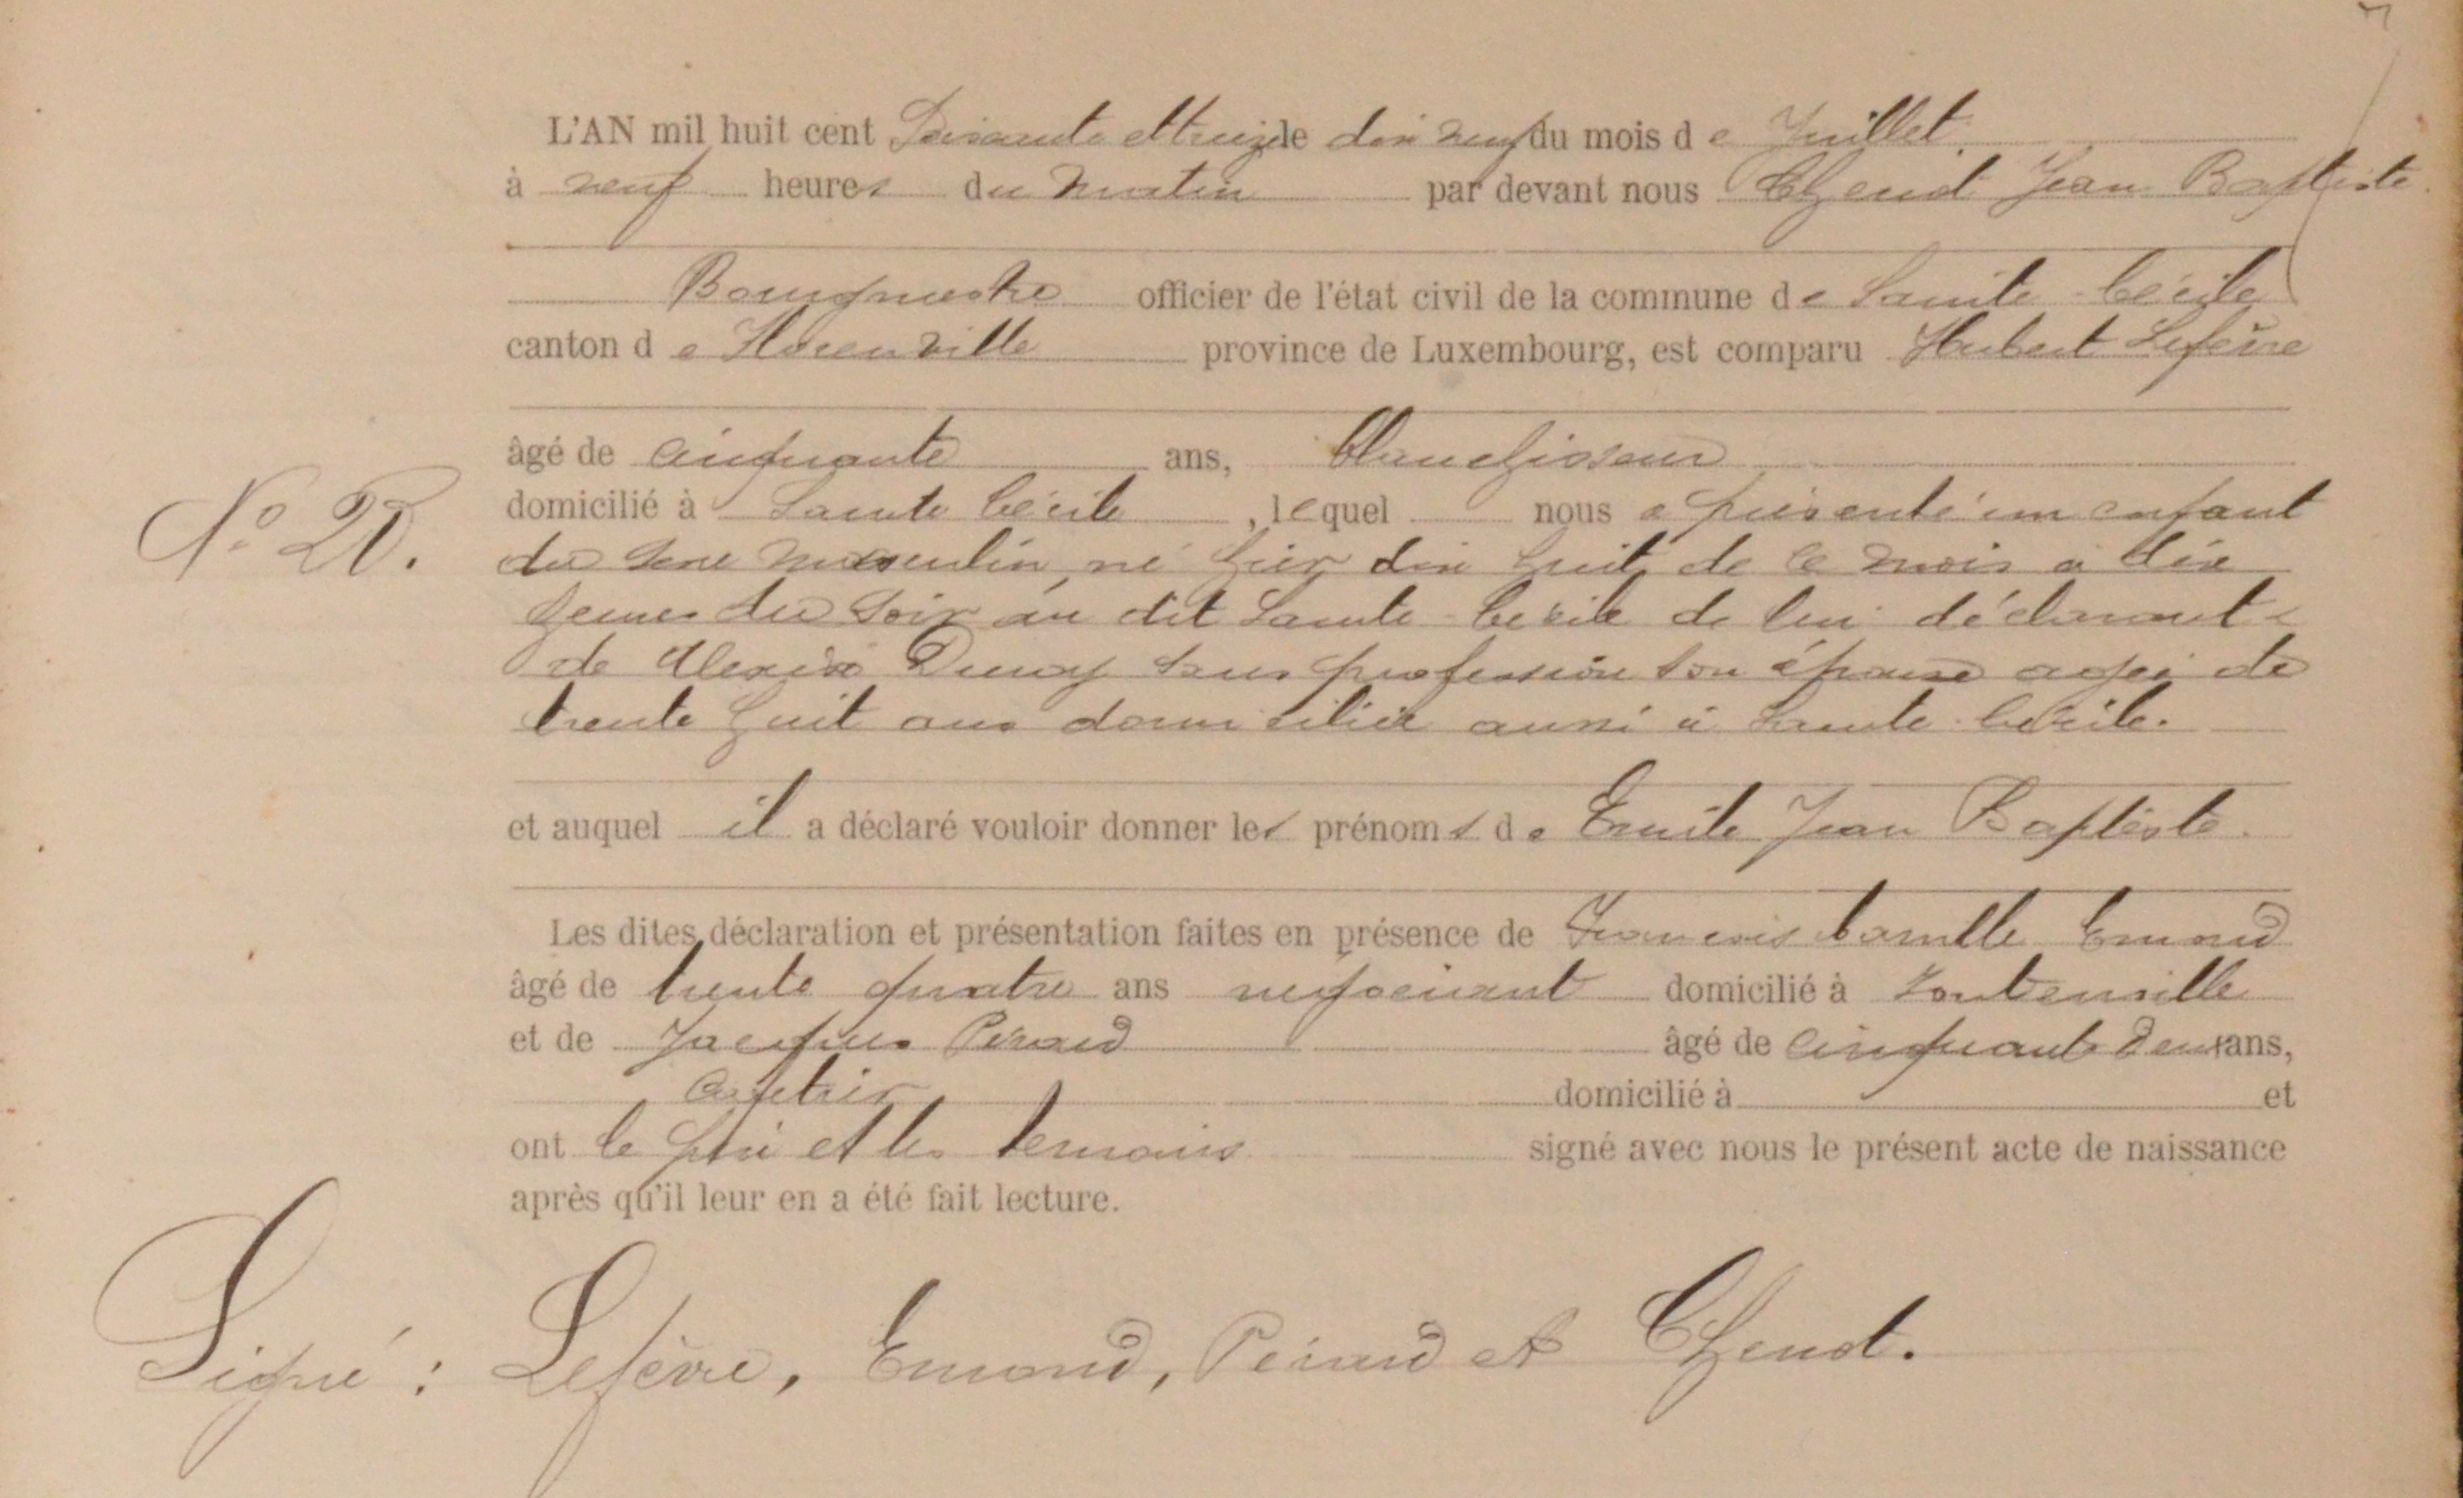 L'AN mil huit cent Soixante et treize le dix neuf du mois d e Juillet
à neuf heures du matin par devant nous Chenot Jean Baptiste
Bourgmestre officier de l'état civil de la commune de Sainte Cécile
canton d e Florenville province de Luxembourg, est comparu Hubert Lefèvre
âgé de cinquante ans, blanchisseur
domicilié à Sainte Cécile, lequel nous a présenté un enfant
N° 20.
du sexe masculin, né hier dix huit de ce mois à dix
heures du soir au dit Sainte Cécile de lui déclarant
de Alexise sans profession son épouse agée de
trente huit ans domiciliée aussi à Sainte Cécile.
et auquel il a déclaré vouloir donner les prénoms de Emile Jean Baptiste.
Les dites déclaration et présentation faites en présence de François Camille Emond
âgé de trente quatre ans négociant domicilié à
et de Jacques Pérard âgé de cinquante deux ans,
domicilié à et
ont le père et les témoins signé avec nous le présent acte de naissance
après qu'il leur en a été fait lecture.
Signé : Lefèvre, Emond, Pérard et Chenot.